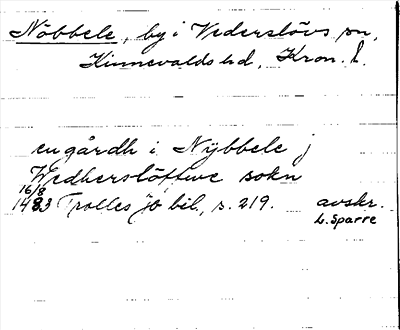 Nöbbele, by i Vederslövs sn,
Kinnevalds hd, Kron. l.
en gårdh i Nÿbbele j
Wedherslöffwe sokn
16/8
1483 Trolles jb bil, s. 219. avskr.
L. Sparre